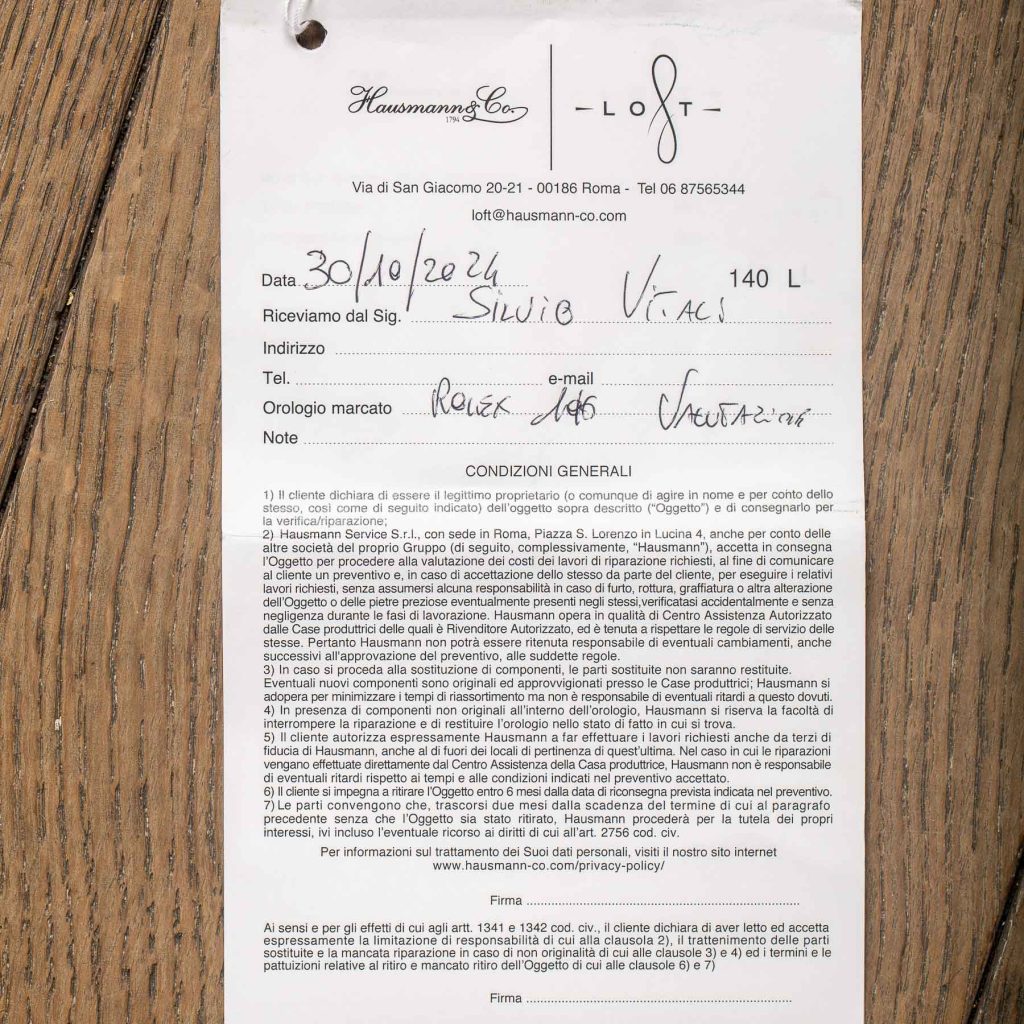 Hausmann & Co.
1794
LOFT
Via di San Giacomo 20-21 - 00186 Roma - Tel 06 87565344
loft@hausmann-co.com
Data 30/10/2024
140 L
Riceviamo dal Sig. Silvio Vitali
Indirizzo
Tel. e-mail
Orologio marcato Rolex Valutazione
Note
CONDIZIONI GENERALI
1) Il cliente dichiara di essere il legittimo proprietario (o comunque di agire in nome e per conto dello
stesso, così come di seguito indicato) dell'oggetto sopra descritto ("Oggetto") e di consegnarlo per
la verifica/riparazione;
2) Hausmann Service S.r.l., con sede in Roma, Piazza S. Lorenzo in Lucina 4, anche per conto delle
altre società del proprio Gruppo (di seguito, complessivamente, "Hausmann"), accetta in consegna
l'Oggetto per procedere alla valutazione dei costi dei lavori di riparazione richiesti, al fine di comunicare
al cliente un preventivo e, in caso di accettazione dello stesso da parte del cliente, per eseguire i relativi
lavori richiesti, senza assumersi alcuna responsabilità in caso di furto, rottura, graffiatura o altra alterazione
dell'Oggetto o delle pietre preziose eventualmente presenti negli stessi,verificatasi accidentalmente e senza
negligenza durante le fasi di lavorazione. Hausmann opera in qualità di Centro Assistenza Autorizzato
dalle Case produttrici delle quali è Rivenditore Autorizzato, ed è tenuta a rispettare le regole di servizio delle
stesse. Pertanto Hausmann non potrà essere ritenuta responsabile di eventuali cambiamenti, anche
successivi all'approvazione del preventivo, alle suddette regole.
3) In caso si proceda alla sostituzione di componenti, le parti sostituite non saranno restituite.
Eventuali nuovi componenti sono originali ed approvvigionati presso le Case produttrici; Hausmann si
adopera per minimizzare i tempi di riassortimento ma non è responsabile di eventuali ritardi a questo dovuti.
4) In presenza di componenti non originali all'interno dell'orologio, Hausmann si riserva la facoltà di
interrompere la riparazione e di restituire l'orologio nello stato di fatto in cui si trova.
5) Il cliente autorizza espressamente Hausmann a far effettuare i lavori richiesti anche da terzi di
fiducia di Hausmann, anche al di fuori dei locali di pertinenza di quest'ultima. Nel caso in cui le riparazioni
vengano effettuate direttamente dal Centro Assistenza della Casa produttrice, Hausmann non è responsabile
di eventuali ritardi rispetto ai tempi e alle condizioni indicati nel preventivo accettato.
6) Il cliente si impegna a ritirare l'Oggetto entro 6 mesi dalla data di riconsegna prevista indicata nel preventivo.
7) Le parti convengono che, trascorsi due mesi dalla scadenza del termine di cui al paragrafo
precedente senza che l'Oggetto sia stato ritirato, Hausmann procederà per la tutela dei propri
interessi, ivi incluso l'eventuale ricorso ai diritti di cui all'art. 2756 cod. civ.
Per informazioni sul trattamento dei Suoi dati personali, visiti il nostro sito internet
www.hausmann-co.com/privacy-policy/
Firma
Ai sensi e per gli effetti di cui agli artt. 1341 e 1342 cod. civ., il cliente dichiara di aver letto ed accetta
espressamente la limitazione di responsabilità di cui alla clausola 2), il trattenimento delle parti
sostituite e la mancata riparazione in caso di non originalità di cui alle clausole 3) e 4) ed i termini e le
pattuizioni relative al ritiro e mancato ritiro dell'Oggetto di cui alle clausole 6) e 7)
Firma